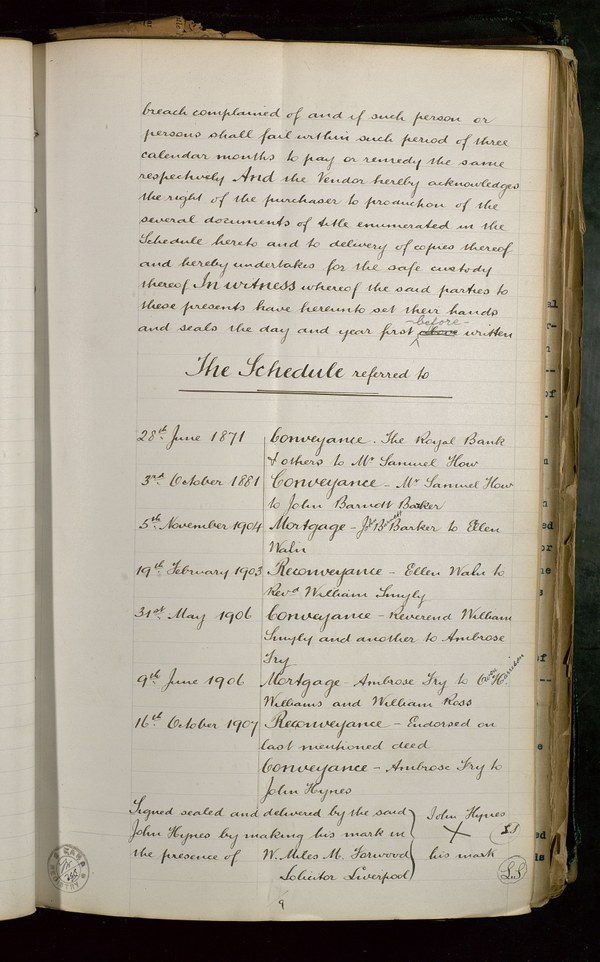 breach complained of and if such person or
persons shall fail within such period of three
calendar months to pay or remedy the same
respectively And the Vendor hereby acknowledges
the right of the purchaser to production of the
several documents of title enumerated in the
Schedule hereto and to delivery of copies thereof
and hereby undertakes for the safe custody
thereof In witness whereof the said parties to
these presents have hereunto set their hands
and seals the day and year first before written
The Schedule referred to
28th June 1871 Conveyance. The Royal Bank
& others to Mr Samuel How
3rd October 1881 Conveyance - Mr Samuel How
to John Barnett Barker
5th November 1904 Mortgage - J. B. Barker to Ellen
Waln
19th February 1903 Reconveyance - Ellen Waln to
Revd William Smyly
31st May 1906 Conveyance - Reverend William
Smyly and another to Ambrose
Fry
9th June 1906 Mortgage - Ambrose Fry to Harrison
Williams and William Ross
16th October 1907 Reconveyance - Endorsed on
last mentioned deed
Conveyance - Ambrose Fry to
John Hynes
Signed sealed and delivered by the said John Hynes
John Hynes by making his mark in X
the presence of W. Miles M. Forwood his mark
Solicitor Liverpool L.S
9